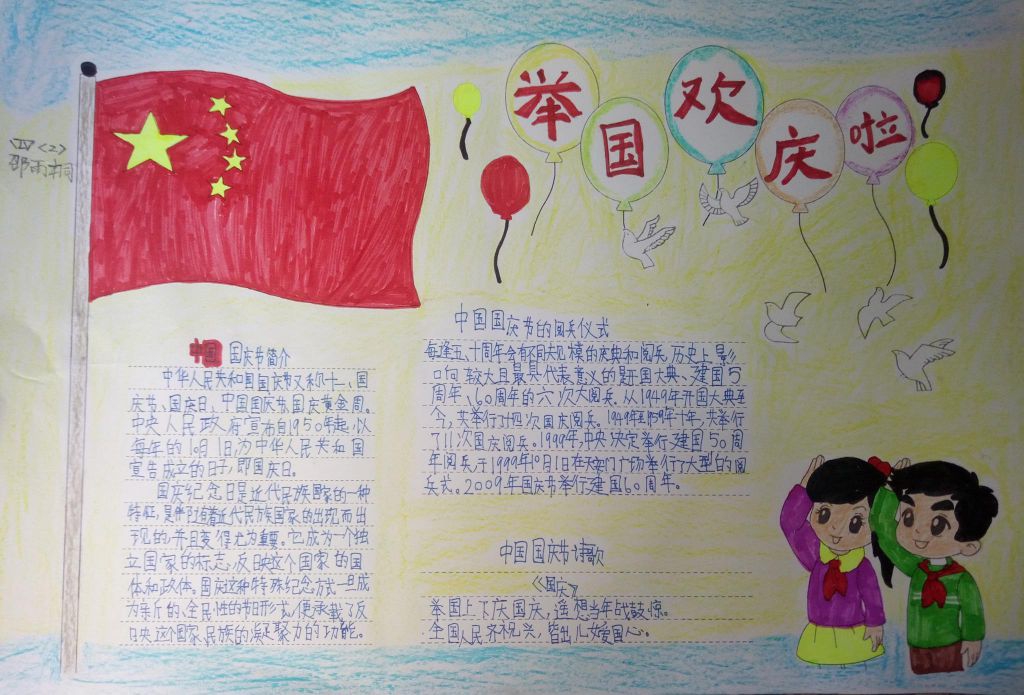 四<2>
邵雨桐
举国欢庆啦
中国 国庆节简介
中华人民共和国国庆节又称十一、国
庆节、国庆日、中国国庆节国庆黄金周。
中央人民政府宣布自1950年起,以
每年的10月1日,为中华人民共和国
宣告成立的日子,即国庆日。
国庆纪念日是近代民族国家的一种
特征,是伴随着近代民族国家的出现而出
现的,并且变得尤为重要。它成为一个独
立国家的标志,反映这个国家的国
体和政体。国庆这种特殊纪念方式一旦成
为新的、全民性的节日形式,便承载了反
映这个国家、民族的凝聚力的功能。
中国国庆节的阅兵仪式
每逢五、十周年会有不同规模的庆典和阅兵,历史上影
响较大且最具代表意义的是开国大典、建国5
周年、60周年的六次大阅兵。从1949年开国大典至
今,共举行了十四次国庆阅兵。1949年至1959年十年,共举行
了11次国庆阅兵。1999年,中央决定举行建国50周
年阅兵,于1999年10月1日在天安门广场举行了大型的阅
兵式。2009年国庆节举行建国60周年。
中国国庆节诗歌
《国庆》
举国上下庆国庆,遥想当年战鼓惊。
全国人民齐祝兴,皆出儿女爱国心。